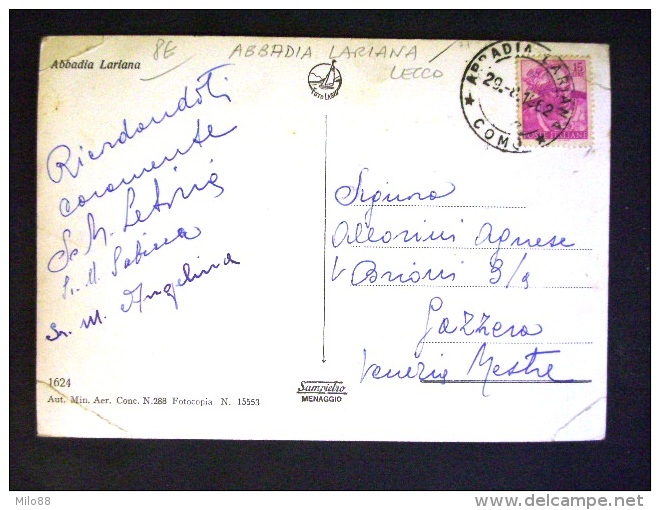 8E ABBADIA LARIANA
LECCO
Abbadia Lariana
FOTO LARIO
ABBADIA LARIANA
29.-8.1962
COMO
15
POSTE ITALIANE
Ricordandoti
caramente
Sr. M. Letizia
Sr. M. Sabina
Sr. M. Angelina
Signora
Allorini Agnese
V Brioni 3/a
Gazzera
Venezia Mestre
1624
Aut. Min. Aer. Conc. N.288 Fotocopia N. 15553
Sampietro
MENAGGIO
Milo88
delcampe.net